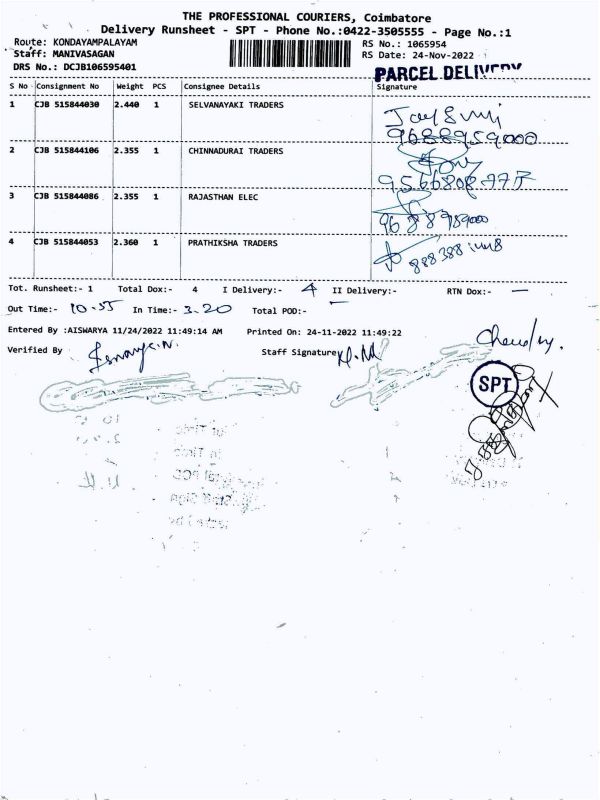 THE PROFESSIONAL COURIERS, Coimbatore
Delivery Runsheet - SPT - Phone No.:0422-3505555 - Page No.:1
Route: KONDAYAMPALAYAM RS No.: 1065954
Staff: MANIVASAGAN RS Date: 24-Nov-2022
DRS No.: DCJB106595401 PARCEL DELIVERY
S No Consignment No Weight PCS Consignee Details Signature
1 CJB 515844030 2.440 1 SELVANAYAKI TRADERS
9688959000
2 CJB 515844106 2.355 1 CHINNADURAI TRADERS
3 CJB 515844086 2.355 1 RAJASTHAN ELEC
4 CJB 515844053 2.360 1 PRATHIKSHA TRADERS
Tot. Runsheet:- 1 Total Dox:- 4 I Delivery:- 4 II Delivery:- RTN Dox:- —
Out Time:- 10.55 In Time:- 3.20 Total POD:- —
Entered By :AISWARYA 11/24/2022 11:49:14 AM Printed On: 24-11-2022 11:49:22
Verified By Staff Signature
SPT